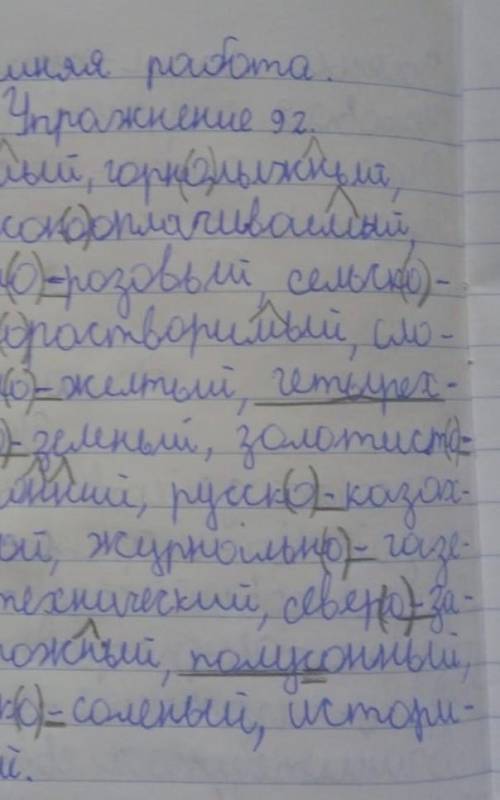 шняя работа.
Упражнение 92.
лый, горн(о)лыжный,
сок(о)оплачиваемый,
(о)-розовый, сельск(о)-
(о)растворимый, сло-
(о)-желтый, четырех-
)-зеленый, золотист(о)-
онний, русск(о)-казах-
ой, журнальн(о)-газе-
технический, север(о)-за-
рожный, полусонный,
к(о)-соленый, истори-
й.